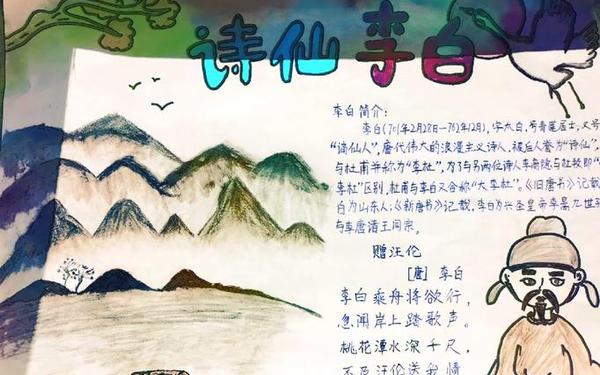 诗仙李白
李白简介:
李白(701年2月28日—762年12月),字太白,号青莲居士,又号
"谪仙人",唐代伟大的浪漫主义诗人,被后人誉为"诗仙",
与杜甫并称为"李杜",为了与另两位诗人李商隐与杜牧即"
李杜"区别,杜甫与李白又合称"大李杜"。《旧唐书》记载
白为山东人;《新唐书》记载,李白为兴圣皇帝李暠九世孙
与李唐诸王同宗。
赠汪伦
[唐] 李白
李白乘舟将欲行,
忽闻岸上踏歌声。
桃花潭水深千尺,
不及汪伦送我情